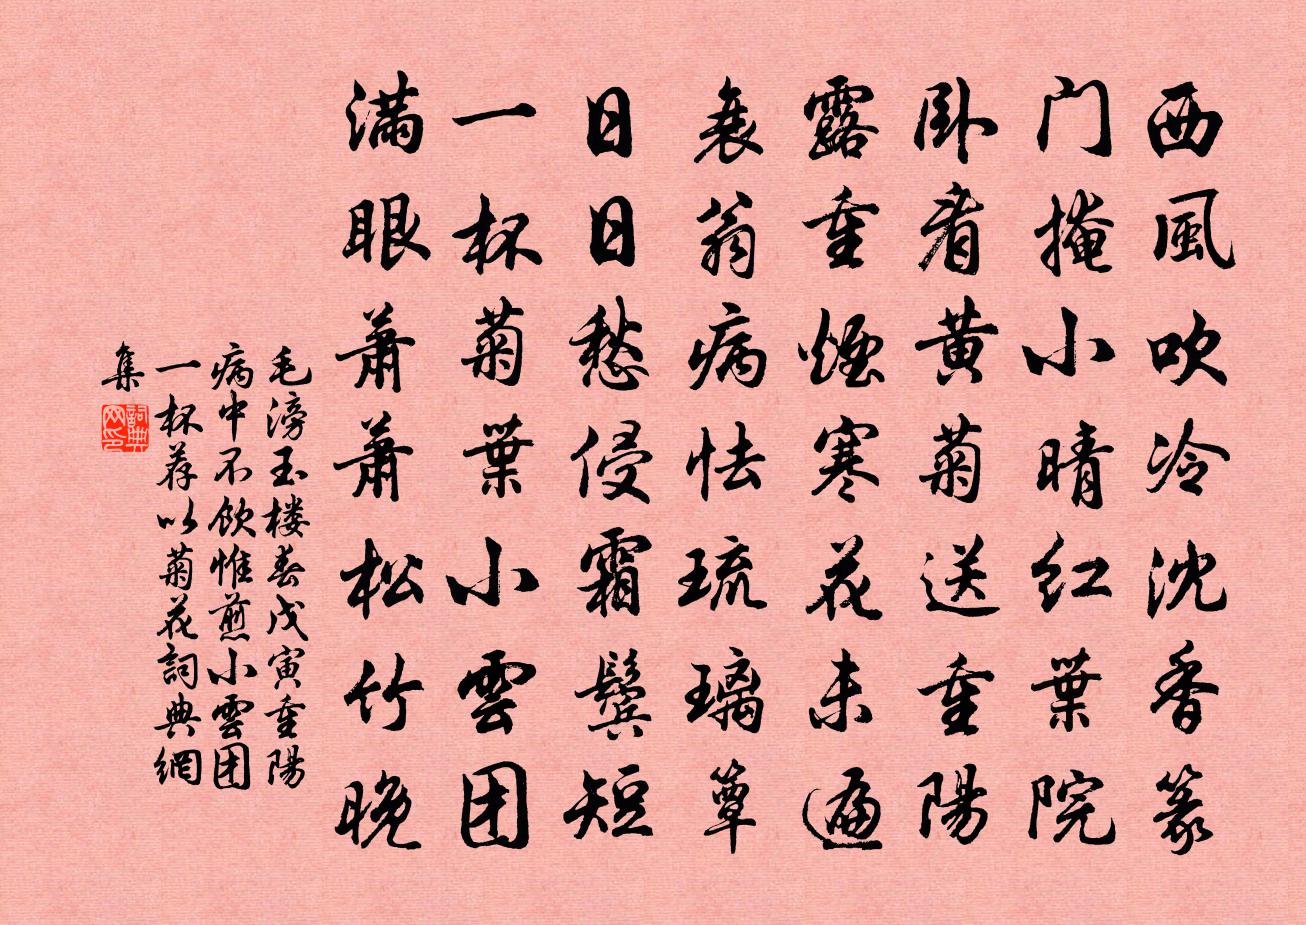 西風吹冷沈香篆
门掩小晴红葉院
卧看黄菊送重陽
露重煙寒花未遍
衰翁病怯琉璃簟
日日愁侵霜鬓短
一杯菊葉小雲团
满眼萧萧松竹晚
毛滂玉楼春戊寅重陽
病中不飲惟煎小雲团
一杯荐以菊花詞典網
集
詞典
网印